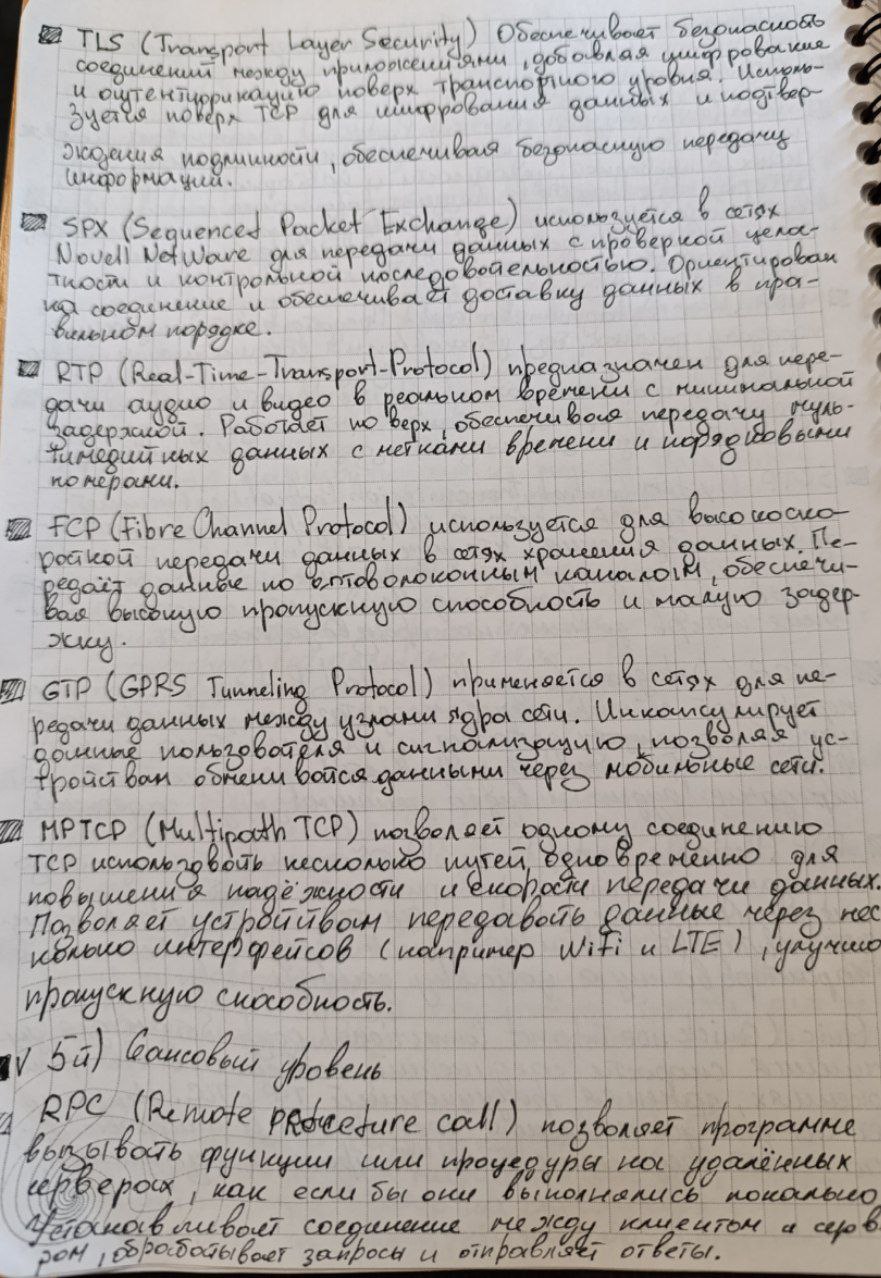 TLS (Transport Layer Security) Обеспечивает безопасность
соединений между приложениями, добавляя шифрование
и аутентификацию поверх транспортного уровня. Исполь-
зуется поверх TCP для шифрования данных и подтвер-
ждения подлинности, обеспечивая безопасную передачу
информации.
SPX (Sequenced Packet Exchange) используется в сетях
Novell NetWare для передачи данных с проверкой цела-
тности и контрольной последовательностью. Ориентирован
на соединение и обеспечивает доставку данных в пра-
вильном порядке.
RTP (Real-Time-Transport-Protocol) предназначен для пере-
дачи аудио и видео в реальном времени с минимальной
задержкой. Работает по верх, обеспечивая передачу муль-
тимедийных данных с метками времени и порядковыми
номерами.
FCP (Fibre Channel Protocol) используется для высокоско-
ростной передачи данных в сетях хранения данных. Пе-
редаёт данные по оптоволоконным каналам, обеспечи-
вая высокую пропускную способность и малую задер-
жку.
GTP (GPRS Tunneling Protocol) применяется в сетях для пе-
редачи данных между узлами ядра сети. Инкапсулирует
данные пользователя и сигнализацию, позволяя ус-
тройствам обмениваться данными через мобильные сети.
MPTCP (Multipath TCP) позволяет одному соединению
TCP использовать несколько путей одновременно для
повышения надёжности и скорости передачи данных.
Позволяет устройствам передавать данные через нес
колько интерфейсов (например WiFi и LTE), улучшо
пропускную способность.
V 5й) Сансовый уровень
RPC (Remote Proceture call) позволяет программе
вызывать функции или процедуры на удалённых
серверах, как если бы они выполнялись локально
Устанавливает соединение между клиентом и серв
ром, обрабатывает запросы и отправляет ответы.